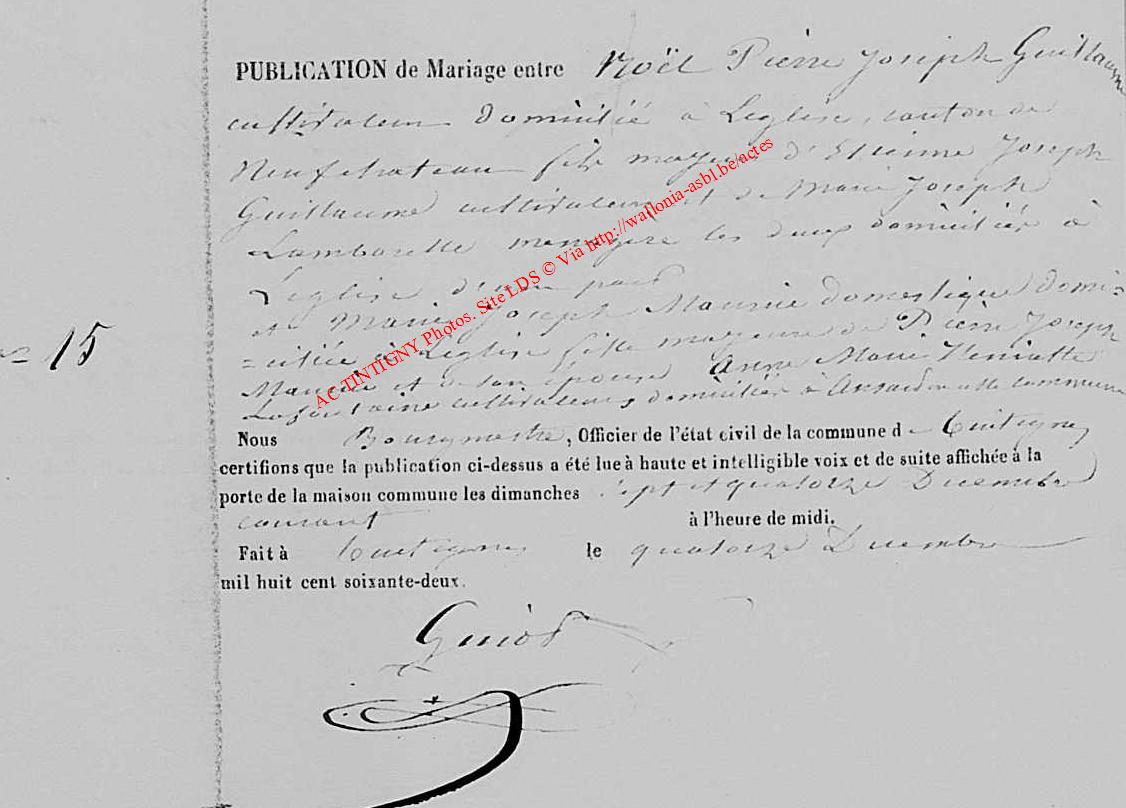 PUBLICATION de Mariage entre Noël Pierre Joseph Guillaume
cultivateur domicilié à Léglise, canton de
Neufchateau fils majeur d'Etienne Joseph
Guillaume cultivateur et de Marie Joseph
menagère les deux domiciliés à
Léglise d'une part
et Marie Joseph Maurice domestique domi-
=ciliée à Léglise fille majeure de Pierre Joseph
et de son épouse Anne Marie Henriette
Lafontaine cultivateurs domiciliés à Ansart commune
15
Nous Bourgmestre, Officier de l'état civil de la commune de Tintigny
certifions que la publication ci-dessus a été lue à haute et intelligible voix et de suite affichée à la
porte de la maison commune les dimanches sept et quatorze Decembre
courant à l'heure de midi.
Fait à Tintigny le quatorze Decembre
mil huit cent soixante-deux.
AC TINTIGNY Photos. Site LDS © Via http://wallonia-asbl.be/actes